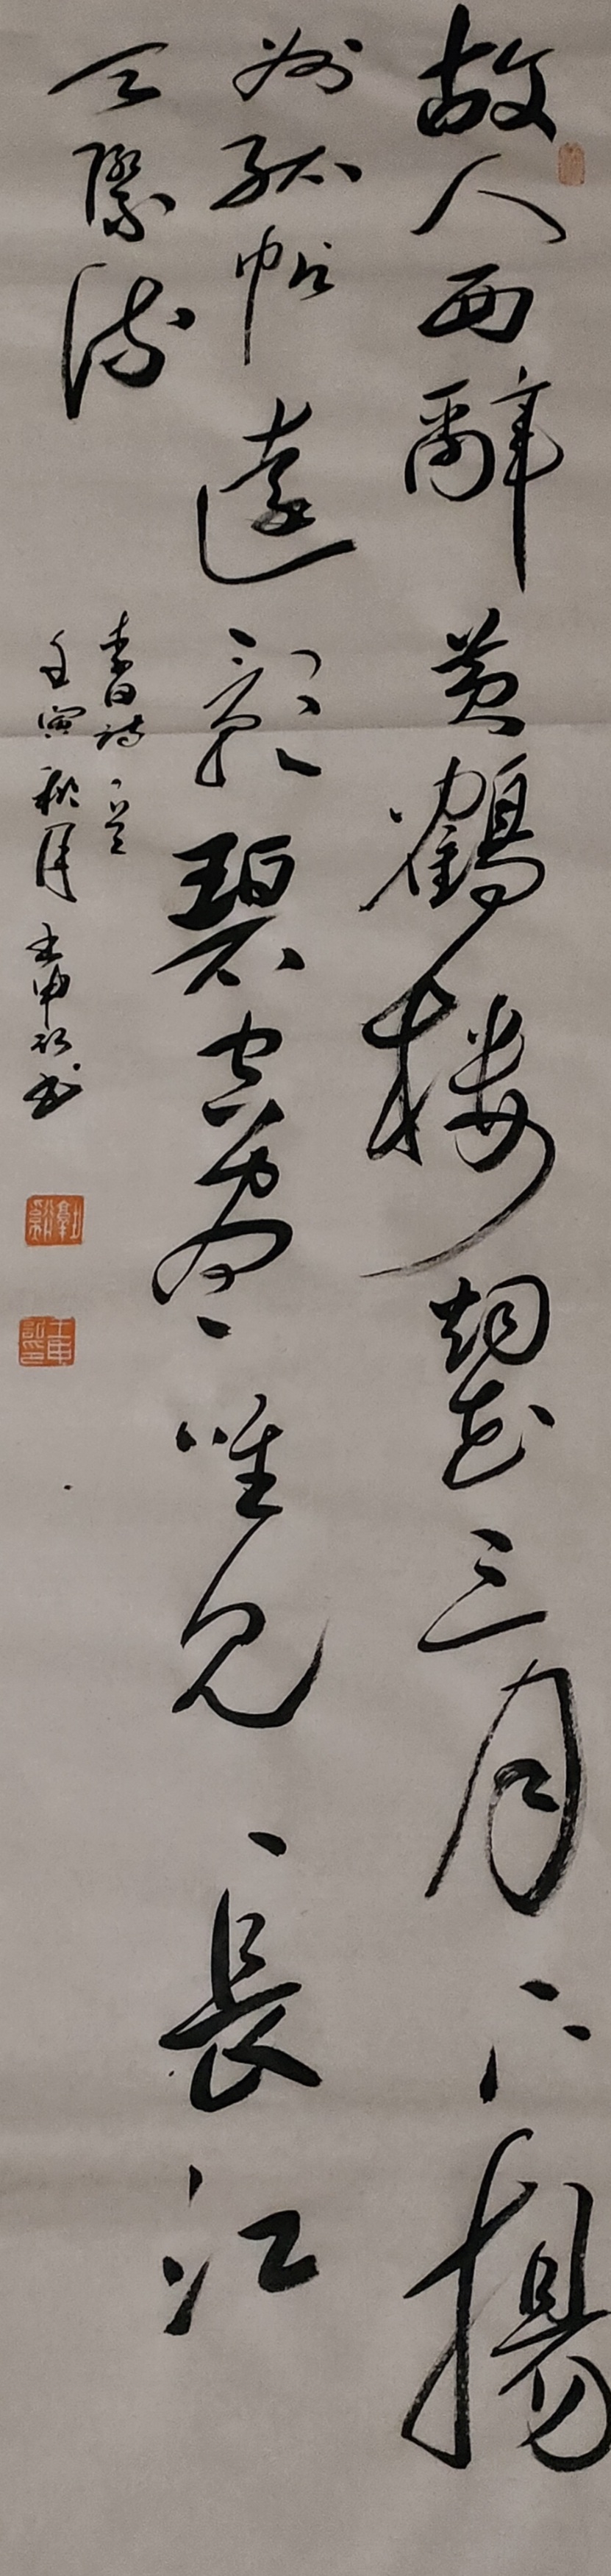 故人西辭黃鶴樓煙花三月下揚
州孤帆遠影碧空盡唯見長江
天際流
李白詩一首
壬寅秋月壬申記書